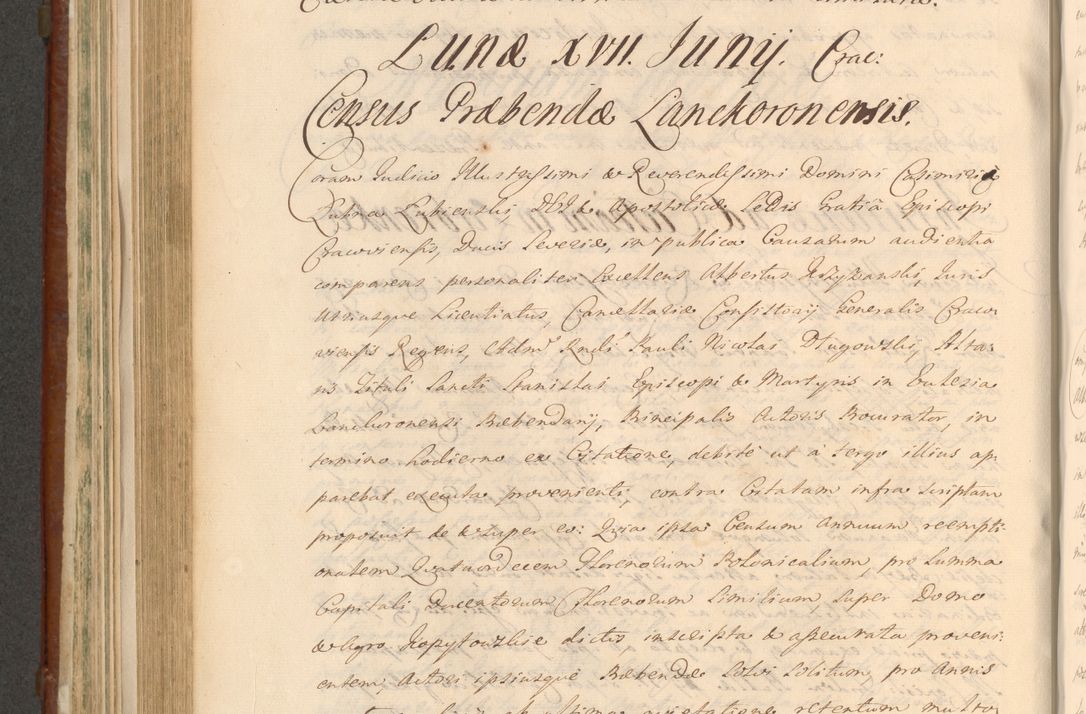 Lunæ XVII. Junij. Crac:
Census Præbendæ Lanckoronensis.
Coram Judicio Illustrissimi & Reverendissimi Domini Casimiri à
Łubna Łubienski, DEI & Apostolicæ Sedis Gratiâ Episcopi
Cracoviensis, Ducis Severiæ, in publica Causarum audientia
comparens personaliter Excellens Albertus Krzykanski, Juris
Utriusque Licentiatus, Cancellariæ Consistorij Generalis Craco
viensis Regens, Admˢ Rndi Pauli Nicolai Długowski, Alta
ris Tituli Sancti Stanislai Episcopi & Martyris in Ecclesia
Lanckoronensi Præbendarij, Principalis Actoris Procurator, in
termino hodierno ex Citatione, debitè ut à tergo illius ap
parebat executa provenienti, contra Citatam infra scriptam
proposuit de & super eo: Quia ipsa Censum annuum reempti
onalem Quatuordecem Florenorum Polonicalium, pro Summa
Capitali Ducentorum Florenorum Similium, super Domo
& Agro Kopytowskie dictis inscripta & assecurata proveni
entem, Actori ipsiusque Præbendæ solvi solitum, pro Annis
retentum